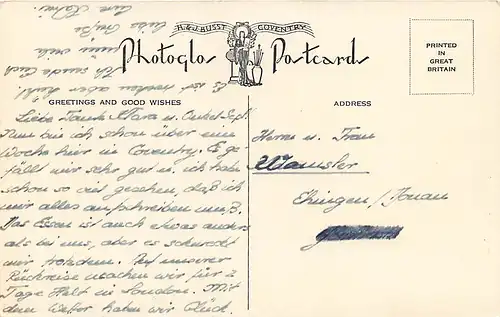 H. & J. BUSST COVENTRY
Photoglos Postcards
PRINTED
IN
GREAT
BRITAIN
GREETINGS AND GOOD WISHES
Liebe Tante Klara u. Onkel Sepp!
Nun bin ich schon über eine
Woche hier in Coventry. Es ge-
fällt mir sehr gut u. ich habe
schon so viel gesehen, daß ich
mir alles aufschreiben muß.
Das Essen ist auch etwas anders
als bei uns, aber es schmeckt
mir trotzdem. Auf unserer
Rückreise machen wir für 2
Tage Halt in London. Mit
dem Wetter haben wir Glück.
Es ist trocken aber kühl.
Ich sende Euch
viele
liebe Grüße
Eure
ADDRESS
Herrn u. Frau
Wamsler
Ehingen/Donau